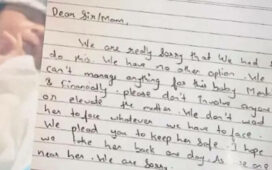 Dear Sir/Mam,
We are realy Sorry that We had
do this. We have no other option. We
can't manage anything for this baby
& Financially. please don't Involve anyone
or elevate the matter. We don't want
her to face whatever we have to face.
We plead you to keep her Safe. I hope
we her back one day. As
near her. We are Sorry.